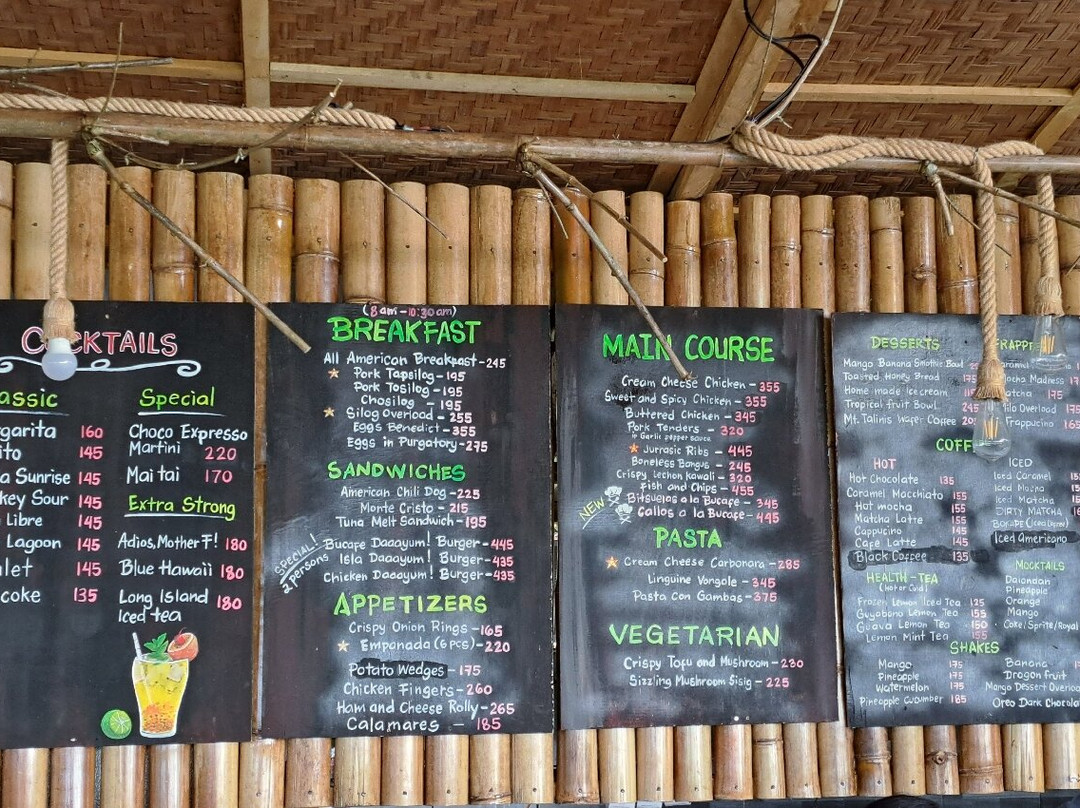 COCKTAILS
assic
garita 160
ito 145
a Sunrise 145
key Sour 145
Libre 145
Lagoon 145
let 145
coke 135
Special
Choco Expresso
Martini 220
Mai tai 170
Extra Strong
Adios, Mother F! 180
Blue Hawaii 180
Long Island
Iced tea 180
(8am-10:30am)
BREAKFAST
All American Breakfast-245
Pork Tapsilog-195
Pork Tosilog-195
Chosilog-195
Silog Overload-255
Eggs Benedict-355
Eggs in Purgatory-275
SANDWICHES
American Chili Dog-225
Monte Cristo-215
Tuna Melt Sandwich-195
SPECIAL!
2 persons
Bucape Daaayum! Burger-445
Isla Daaayum! Burger-435
Chicken Daaayum! Burger-435
APPETIZERS
Crispy Onion Rings-165
Empanada (6pcs)-220
Potato Wedges-175
Chicken Fingers-260
Ham and Cheese Rolly-265
Calamares - 185
MAIN COURSE
Cream Cheese Chicken-355
Sweet and Spicy Chicken-355
Buttered Chicken-345
Pork Tenders-320
in Garlic pepper sauce
Jurassic Ribs-445
Boneless Bangus-245
Crispy Lechon kawali-320
Fish and Chips-455
NEW
Bitsuelas a la Bucape-345
Callos a la Bucape-445
PASTA
Cream Cheese Carbonara-285
Linguine Vongole-345
Pasta Con Gambas-375
VEGETARIAN
Crispy Tofu and Mushroom-230
Sizzling Mushroom Sisig-225
DESSERTS
Mango Banana Smothie Bowl
Toasted Honey Bread 175
Home made ice cream
Tropical fruit Bowl
Mt. Talinis Wafer Coffee
FRAPPE
aramel
ocha Madness 17
atcha 175
ilo Overload 175
Frappuccino 165
COFF
HOT
Hot Chocolate 135
Caramel Macchiato 155
Hot mocha 155
Matcha Latte 155
Cappucino 145
Cafe Latte 145
Black Coffee 135
ICED
Iced Caramel
Iced Mocha
Iced Matcha
DIRTY MATCHA
Iced Americano
HEALTH-TEA
(Hot or Cold)
Frozen Lemon Iced Tea 125
Guyabano Lemon Tea 155
Guava Lemon Tea 150
Lemon Mint Tea 155
MOCKTAILS
Dalandan
Pineapple
Orange
Mango
Coke/Sprite/Royal
SHAKES
Mango 175
Pineapple 175
Watermelon 175
Pineapple Cucumber 185
Banana
Dragon fruit
Mango Dessert Overload
Oreo Dark Chocolat